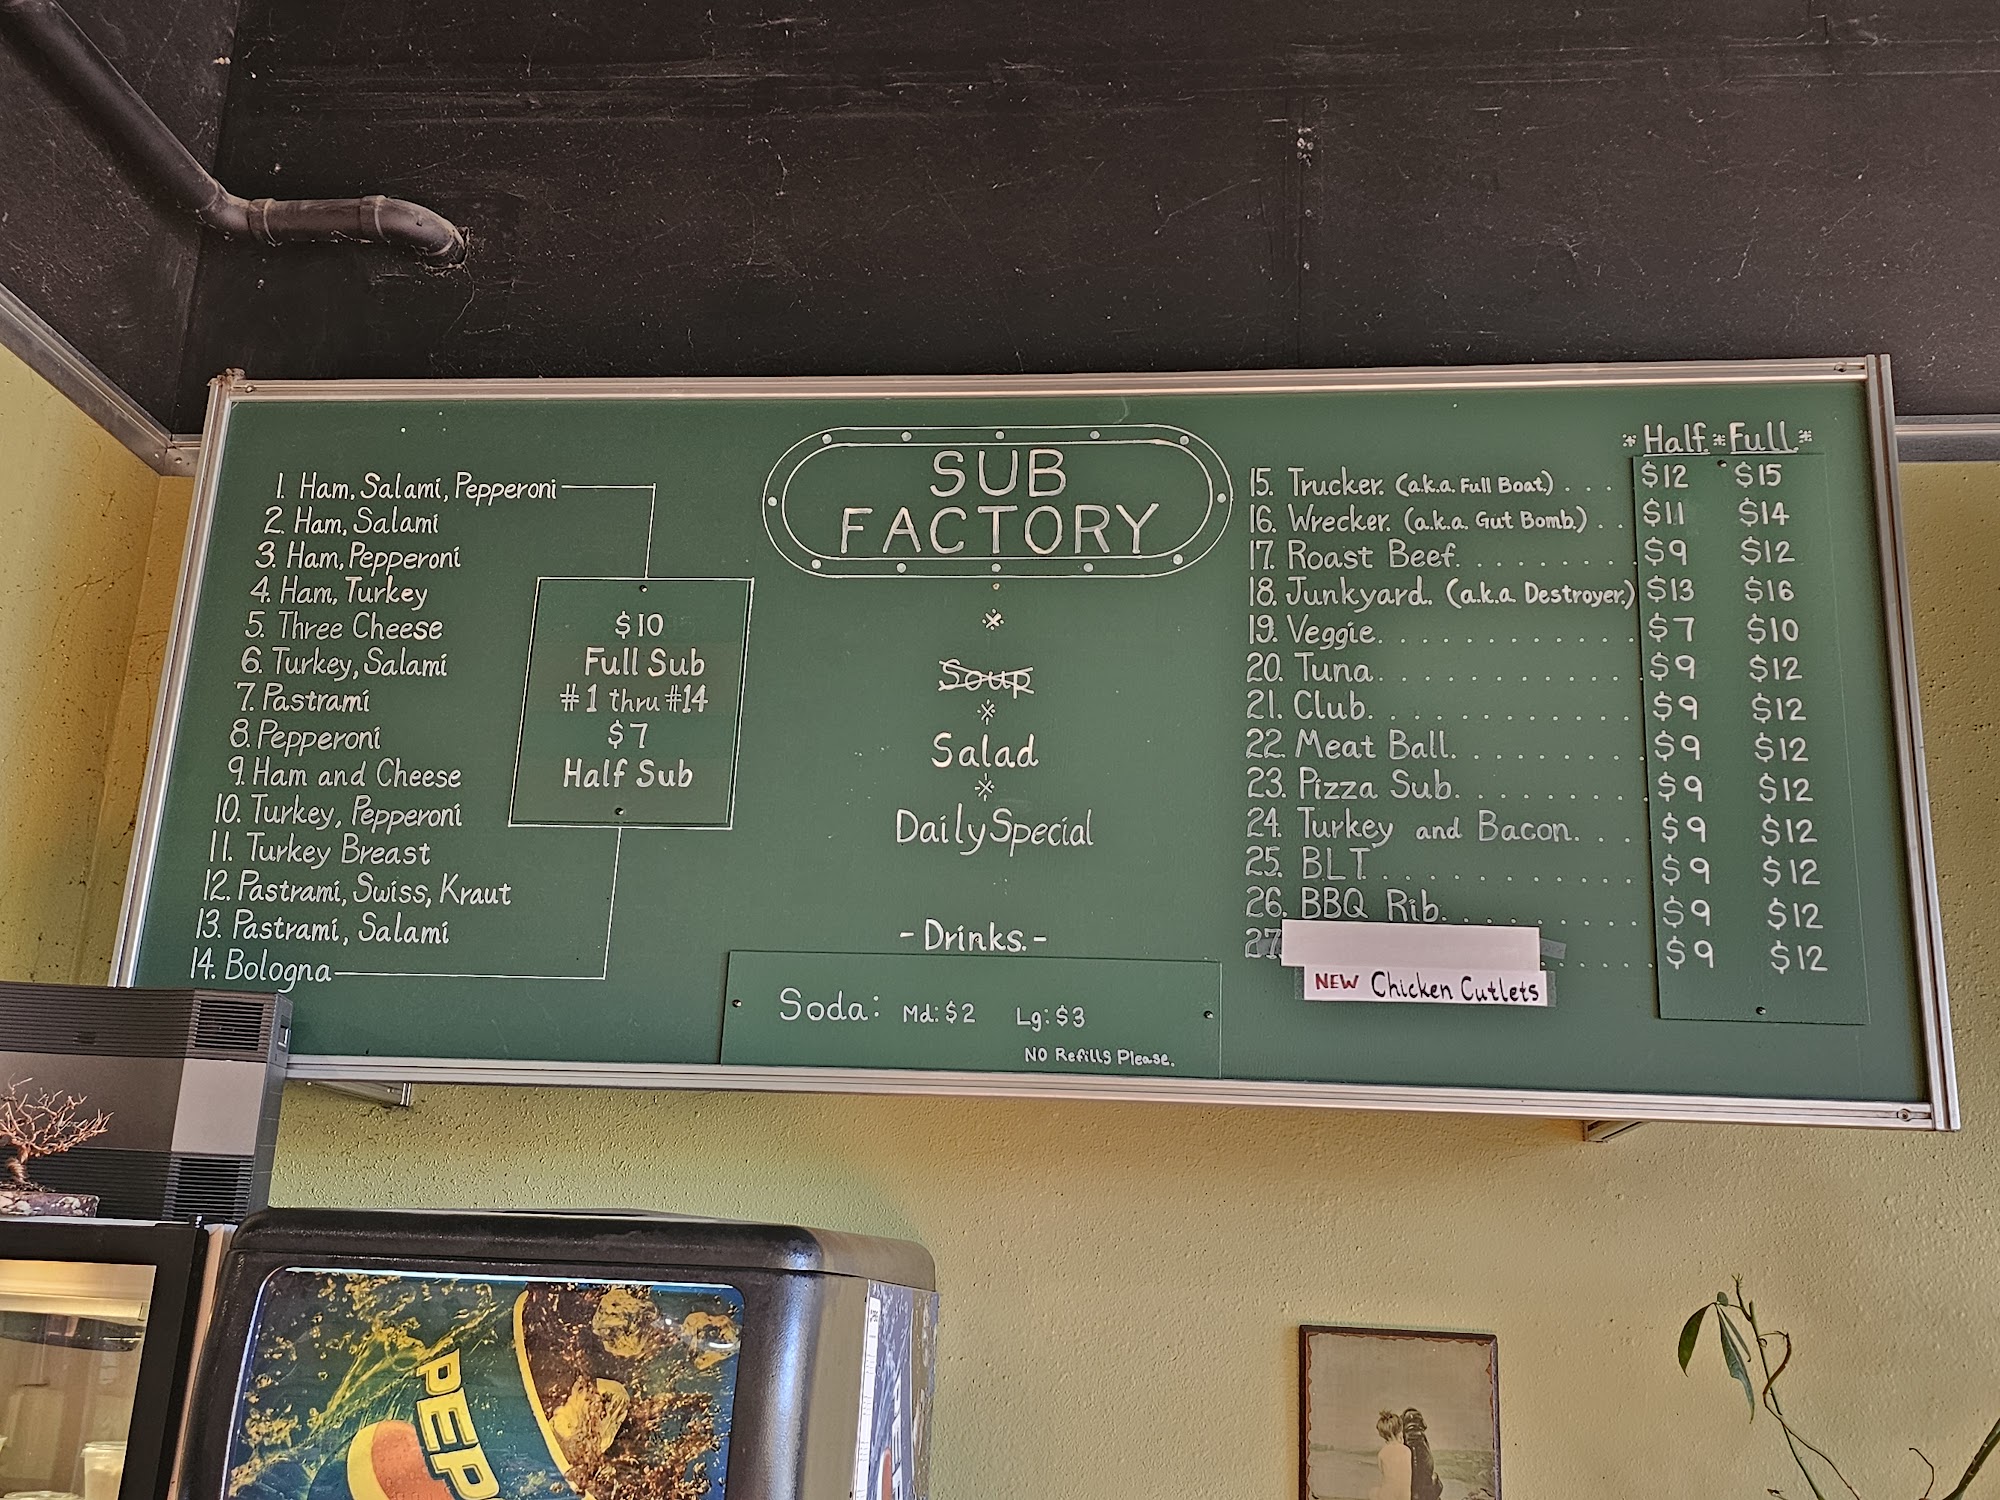 SUB
FACTORY
1. Ham, Salami, Pepperoni
2. Ham, Salami
3. Ham, Pepperoni
4. Ham, Turkey
5. Three Cheese
6. Turkey, Salami
7. Pastrami
8. Pepperoni
9. Ham and Cheese
10. Turkey, Pepperoni
11. Turkey Breast
12. Pastrami, Swiss, Kraut
13. Pastrami, Salami
14. Bologna
$10
Full Sub
#1 thru #14
$7
Half Sub
Soup
Salad
Daily Special
- Drinks. -
Soda: Md: $2 Lg: $3
NO Refills Please.
* Half * Full *
15. Trucker. (a.k.a. Full Boat.) . . . $12 $15
16. Wrecker. (a.k.a. Gut Bomb.) . . $11 $14
17. Roast Beef. . . . . . . . $9 $12
18. Junkyard. (a.k.a. Destroyer.) $13 $16
19. Veggie. . . . . . . . . . . . $7 $10
20. Tuna. . . . . . . . . . . . $9 $12
21. Club. . . . . . . . . . . . $9 $12
22. Meat Ball. . . . . . . . . $9 $12
23. Pizza Sub. . . . . . . . . $9 $12
24. Turkey and Bacon. . . $9 $12
25. BLT. . . . . . . . . . . . $9 $12
26. BBQ Rib. . . . . . . . . $9 $12
27 . . . . $9 $12
NEW Chicken Cutlets
PEP